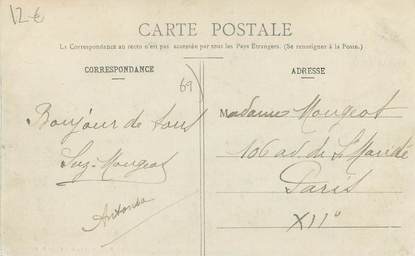 12 €
CARTE POSTALE
La Correspondance au recto n'est pas acceptée par tous les Pays Étrangers. (Se renseigner à la Poste.)
CORRESPONDANCE
69
Bonjour de tous
Suz. Mougeot
Antonia
ADRESSE
Madame Mougeot
106 av. de St Mandé
Paris
XIIº